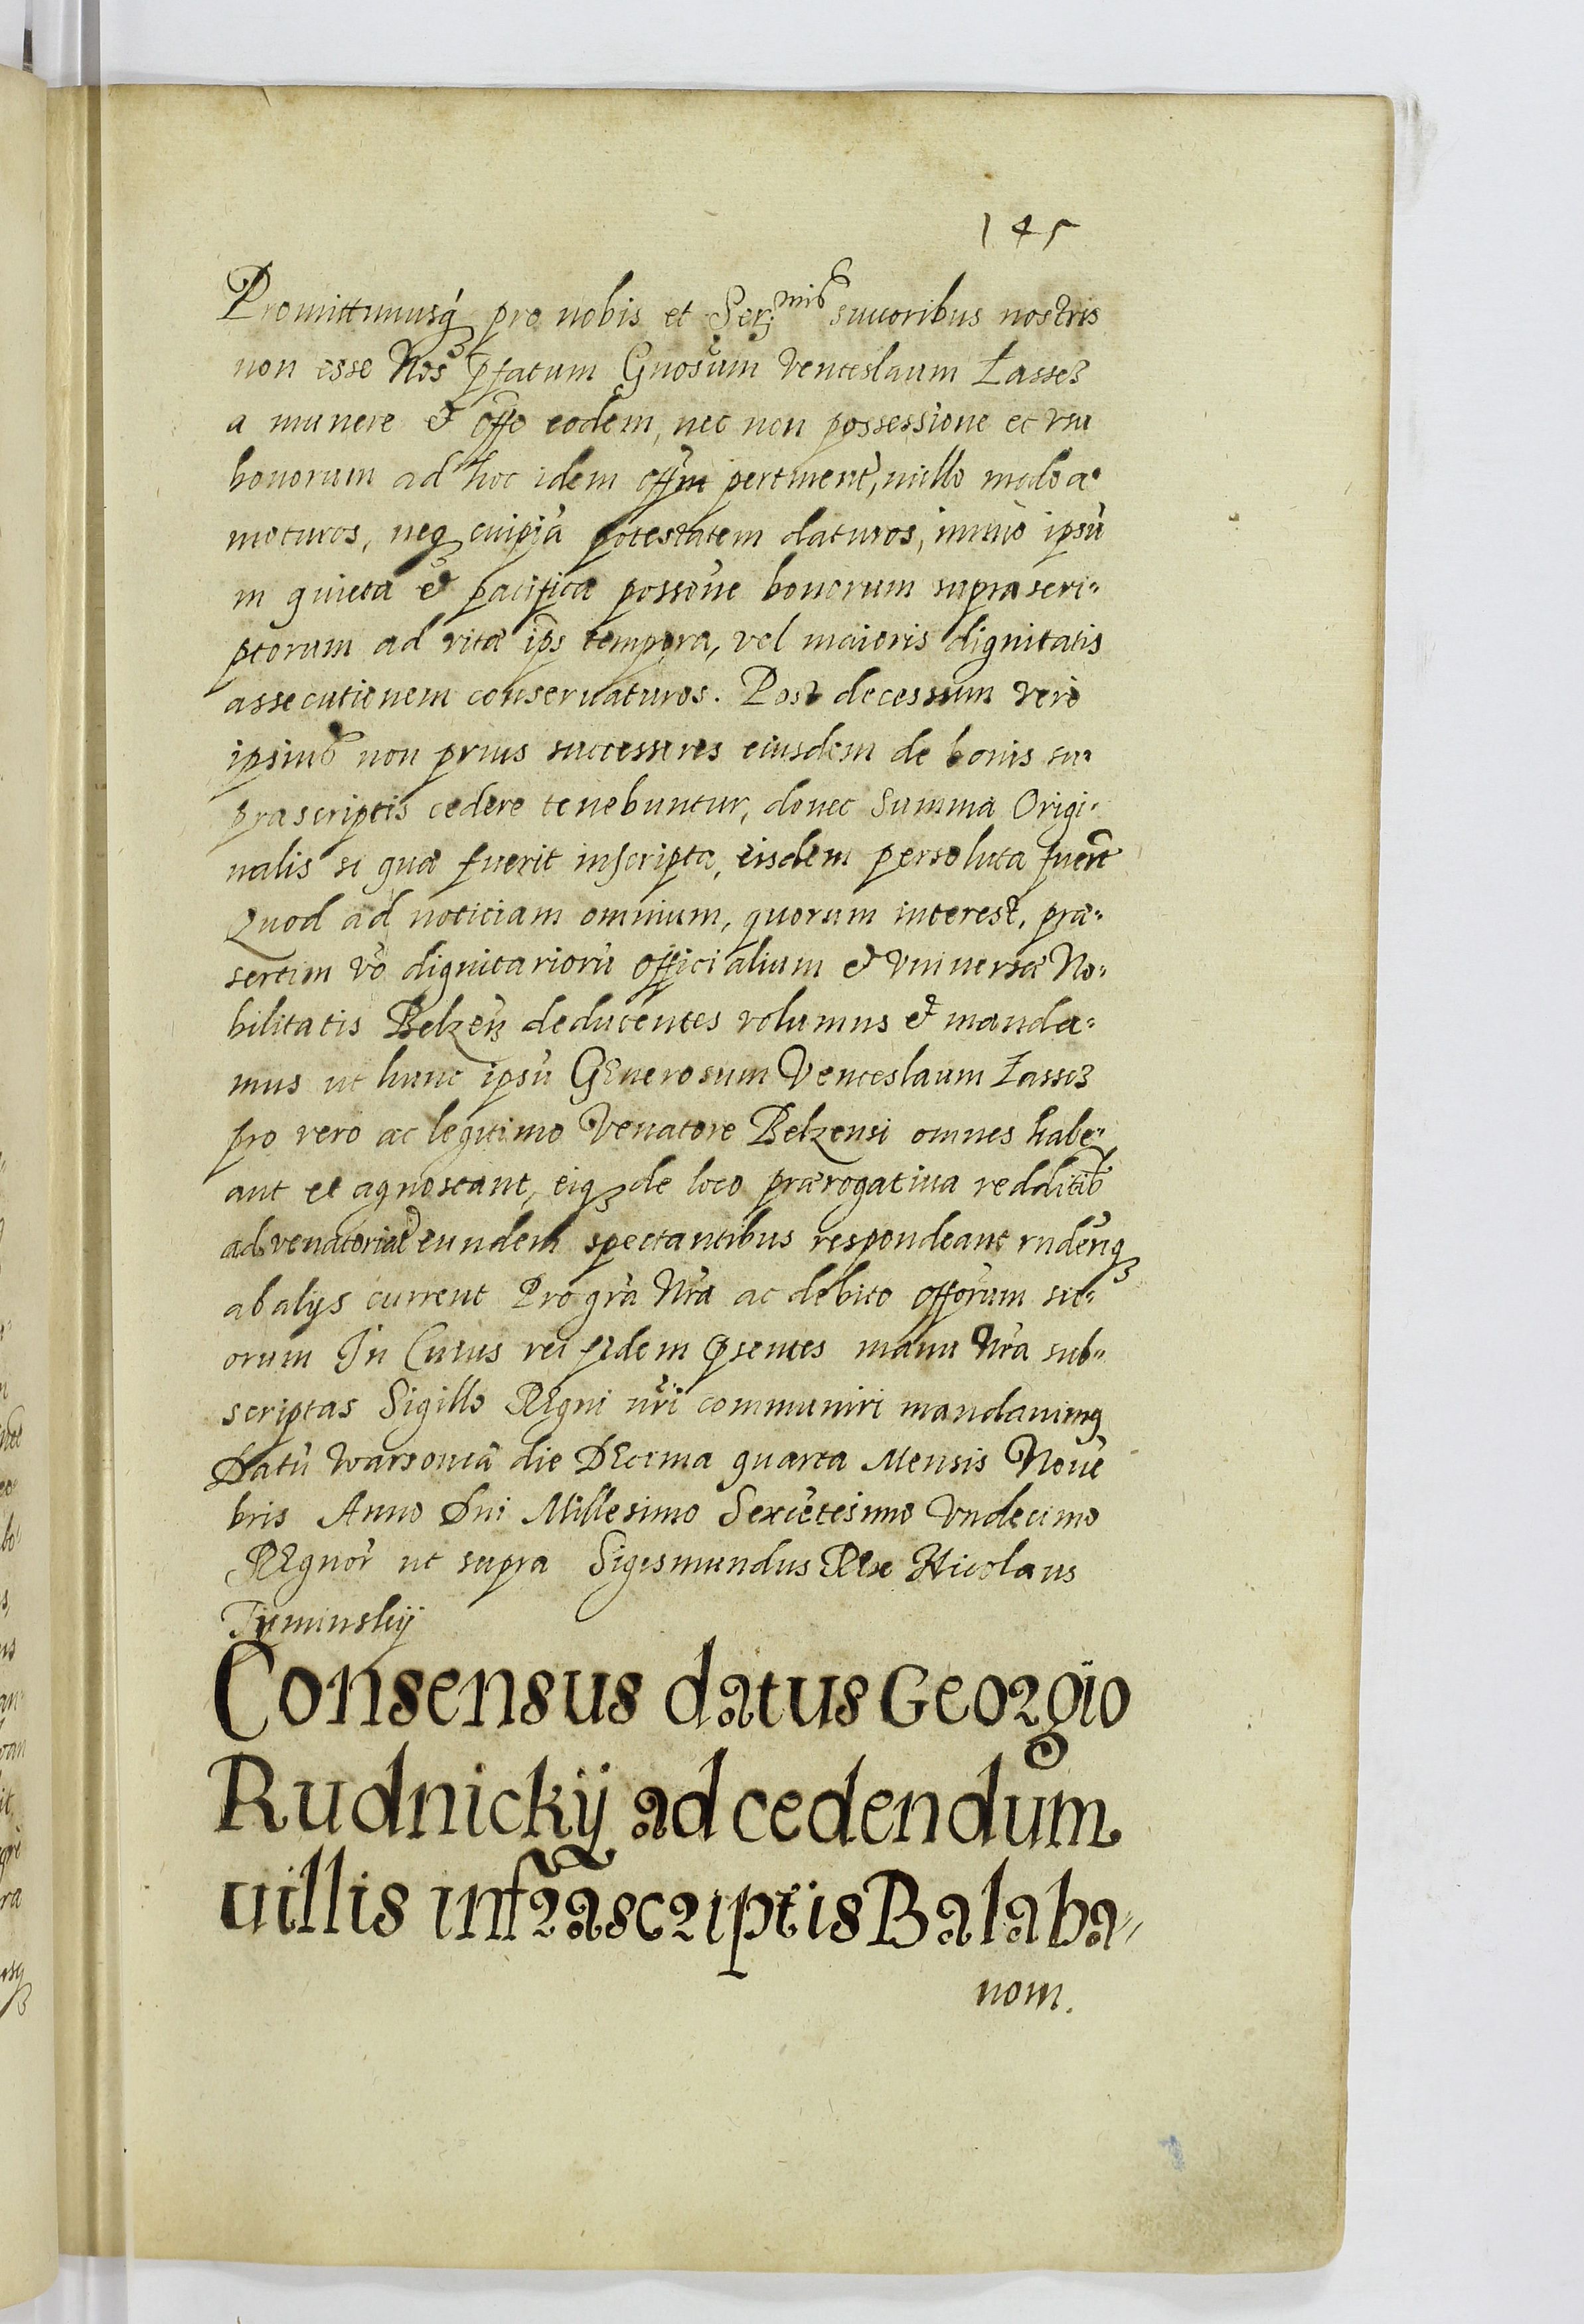 145
Promittimusq́ pro nobis et Ser: mis suuoribus nostris
non esse Nos p̄fatum Gnosum Venceslaum Łassez
a munere et offo eodem, nec non possessione et vsu
bonorum ad hoc idem offm pertinent̀, nullo modo a-
moturos, neq cuipiã potestatem daturos, immò ipsũ
in quieta et pacifica possone bonorum suprascri-
ptorum ad vitæ ips tempora, vel maioris dignitatis
assecutionem conseruaturos. Post decessum verò
ipsius non prius successores eiusdem de bonis su-
prascriptis cedere tenebuntur, donec Summa Origi-
nalis si quæ fuerit inscripta, eisdem persoluta fuerit
Quod ad noticiam omnium, quorum interest, præ-
sertim vo dignitariorũ officialium et Vniuersæ No-
bilitatis Belzen deducentes volumus et manda-
mus ut hunc ipsũ GEnerosum Venceslaum Łassez
pro vero ac legitimo Venatore Belzensi omnes habe-
ant et agnoscant, eiq de loco prærogatiua redditib
ad venatoriat eundem spectantibus respondeant rnderiq
ab alijs current Pro grã Nrã ac debito offorum su-
orum In Cuius rei fidem p̄sentes manu Nrã sub-
scriptas Sigillo REgni nri communiri mandauimq
Datũ Warsouiæ die DEcima quarta Mensis Nouẽ
bris Anno Dni Millesimo Sexcẽtesimo Vndecimo
REgnor ut supra Sigismundus REx Nicolaus
Tuminskij
Consensus datus Georgio
Rudnickij ad cedendum
uillis infrascriptis Balaba-
nom.